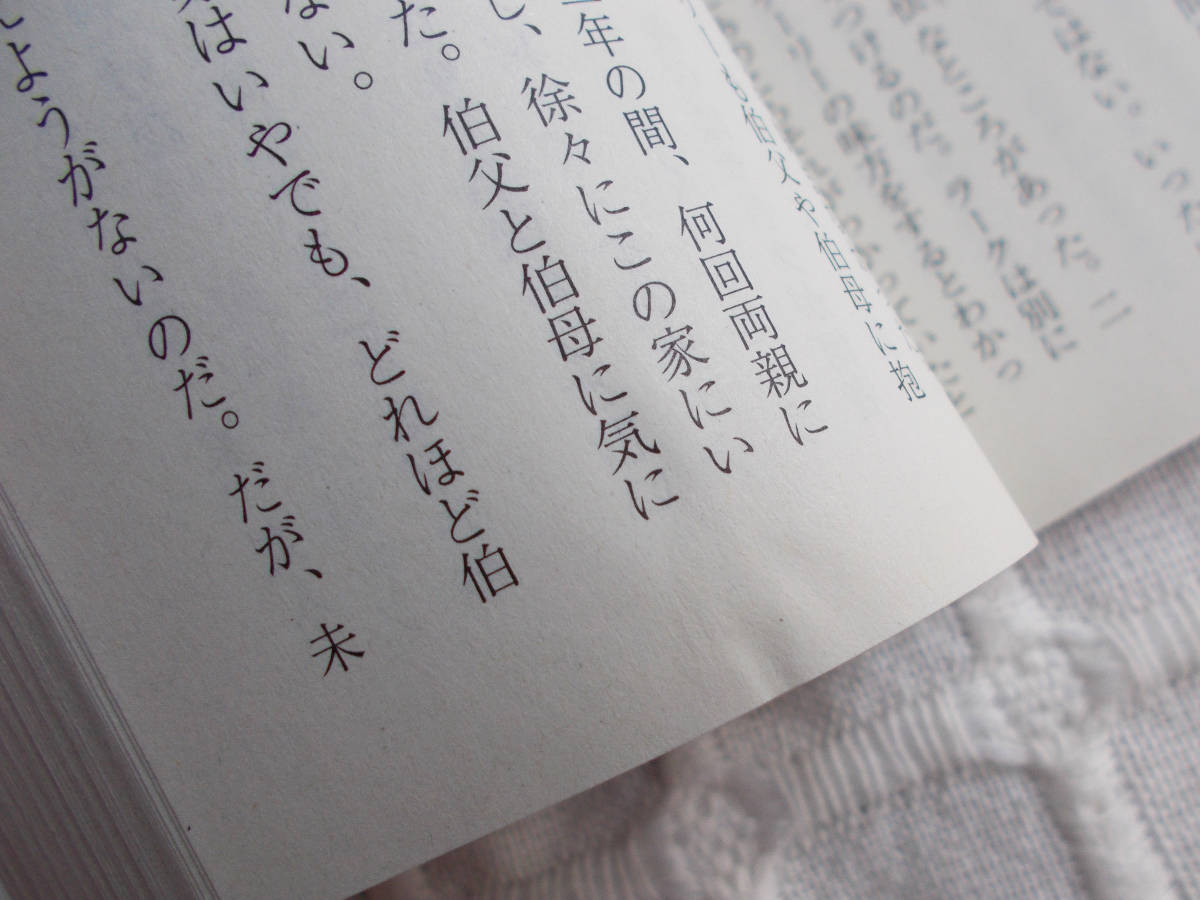 はない。いった
なところがあった。二
つけるのだ。ラークは別に
の味方をするとわかっ
ーも伯父や伯母に抱
年の間、何回両親に
し、徐々にこの家にい
た。伯父と伯母に気に
ない。
はいやでも、どれほど伯
しようがないのだ。だが、未